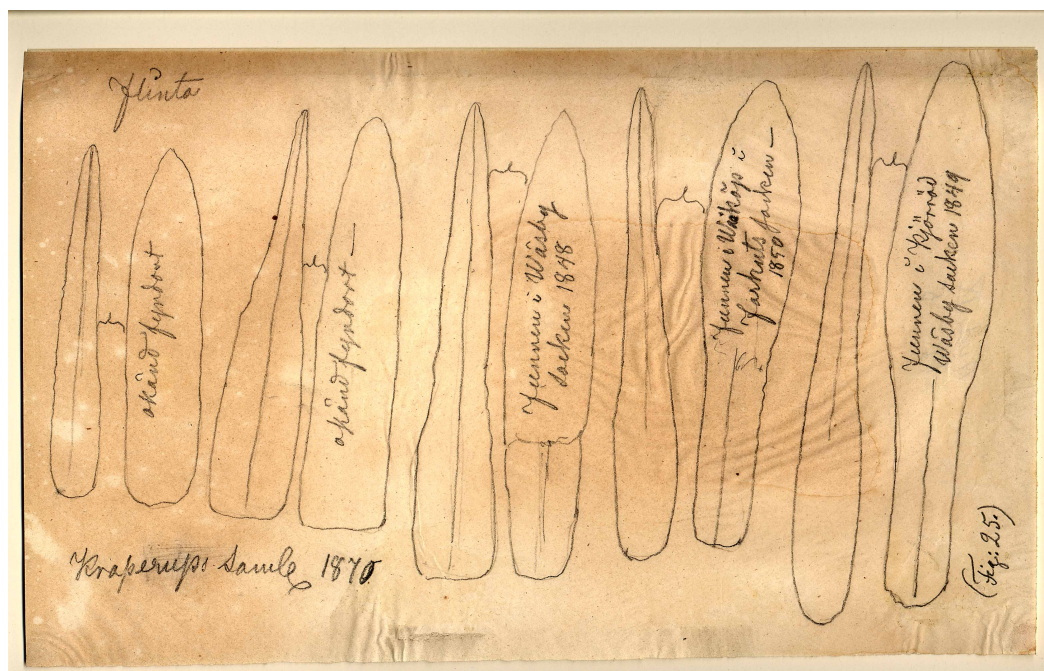 Flinta
okänd fyndort
okänd fyndort —
Funnen i Wäsby
socken 1848
Funnen i Wiköps i
Farhults socken —
1850
Funnen i Kjörröd
Wäsby socken 1849
(Fig: 25.)
Kraperups Saml 1870